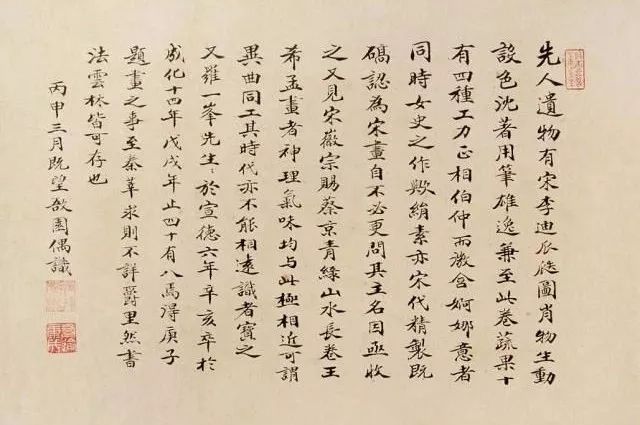 先人遺物有宋李迪瓜瓞圖肖物生動
設色沈著用筆雄逸兼至此卷蔬果十
有四種工力正相伯仲而激含婀娜意者
同時女史之作歟絹素亦宋代精製既
確認為宋畫自不必更問其主名因亟收
之又見宋徽宗賜蔡京青綠山水長卷王
希孟畫者神理氣味均与此極相近可謂
異曲同工其時代亦不能相遠識者寶之
又羅一峯先生：於宣德六年辛亥卒於
成化十四年戊戌年止四十有八焉得庚子
題畫之事至秦莘求則不詳爵里然書
法雲林皆可存也
丙申三月既望敔園偶識